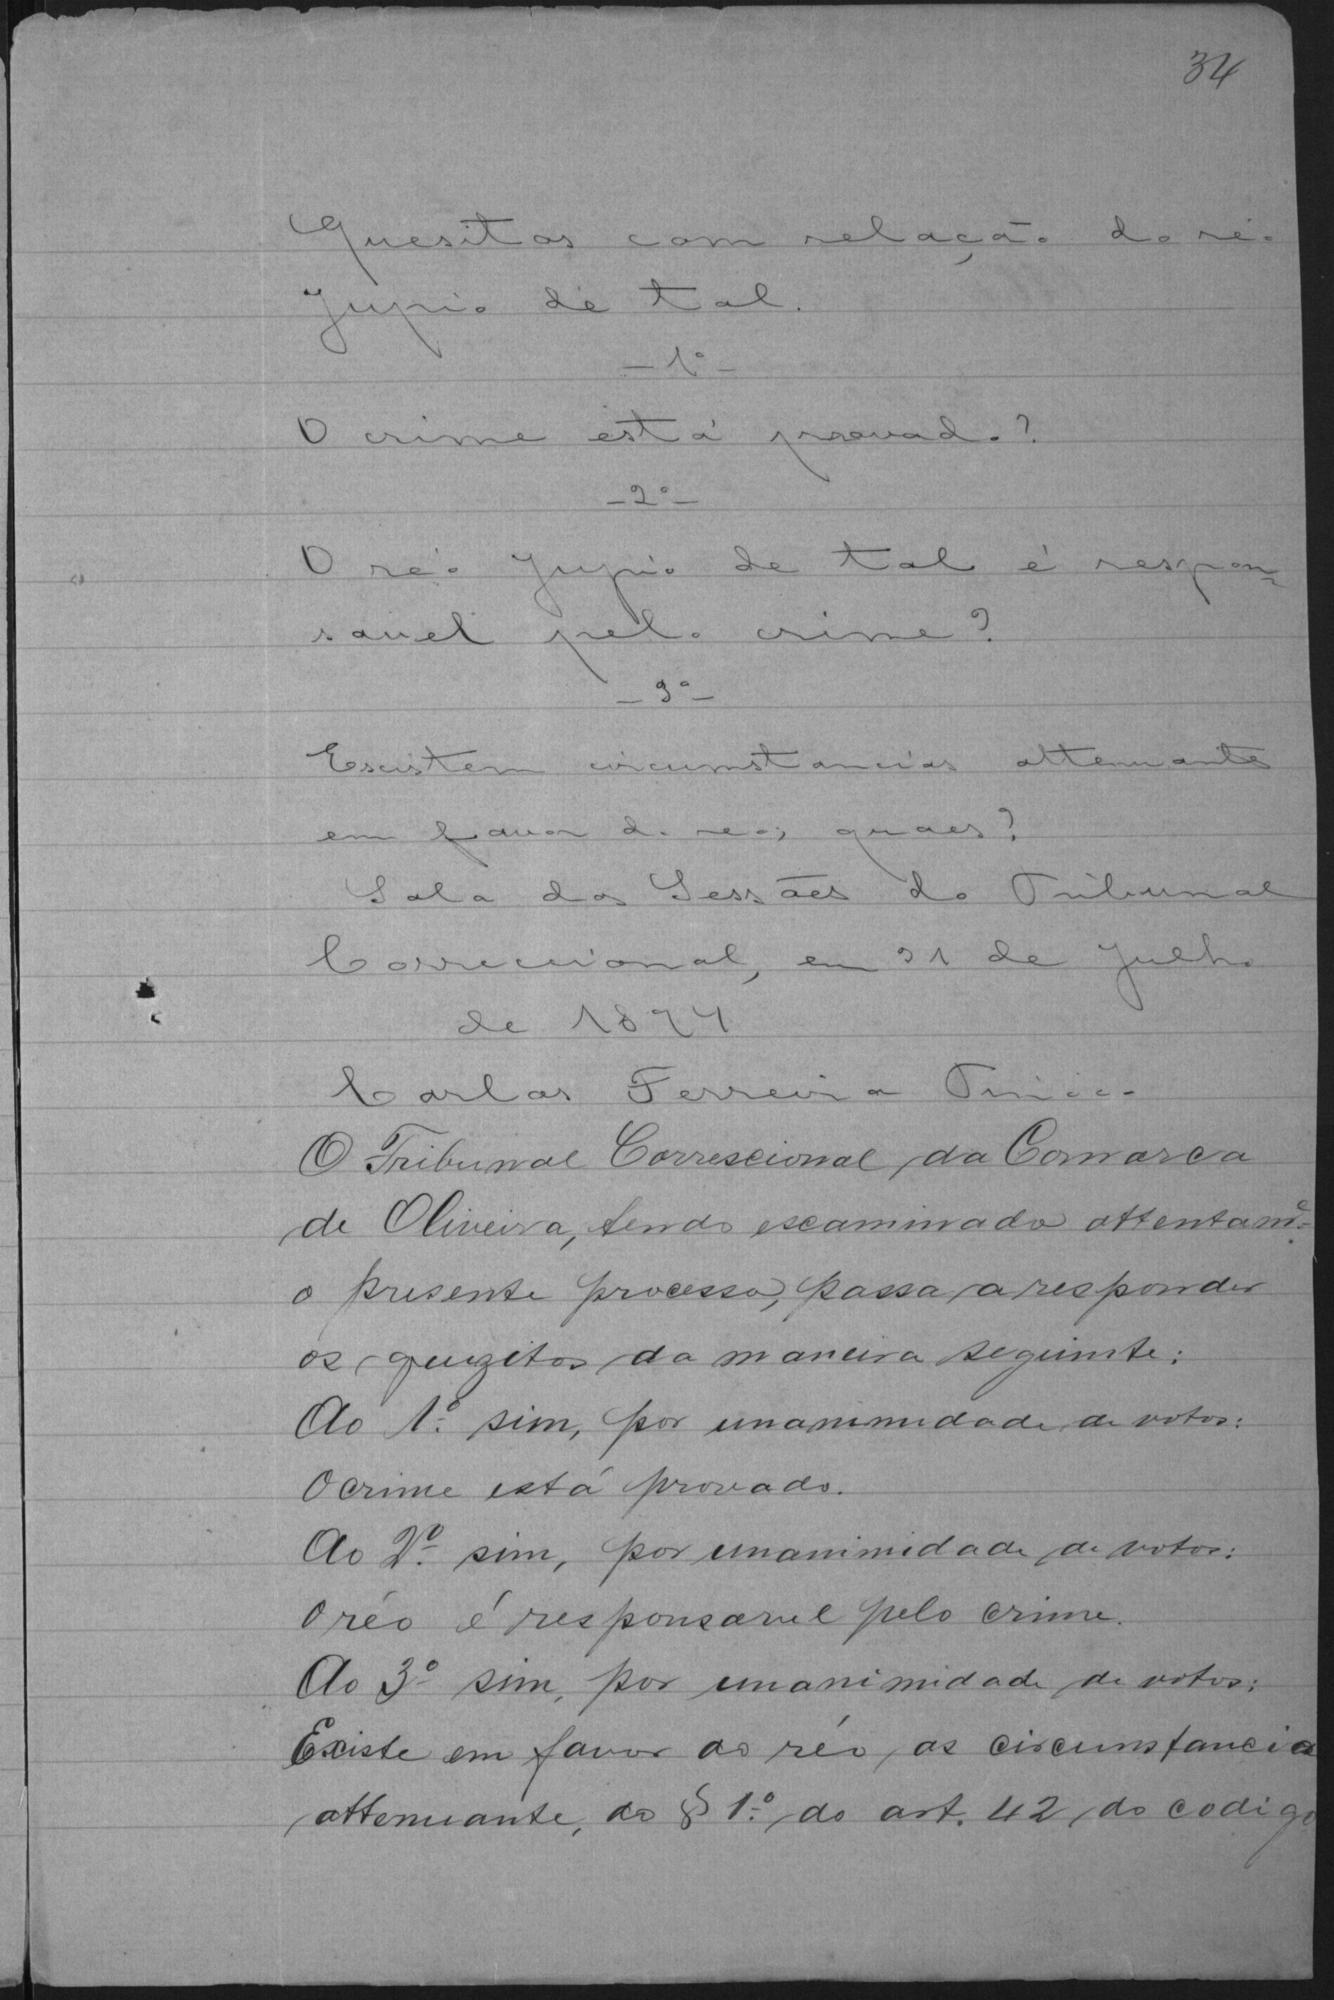 34
Quesitos com relação do réo
Jupio de tal.
— 1º —
O crime está provado?
— 2º —
O réo Jupio de tal é respon-
savel pelo crime?
— 3º —
Existem circumstancias attenuantes
em favor do reo; quaes?
Sala das Sessões do Tribunal
Correccional, em 31 de Julho
de 1894
Carlos Ferreira Tinoco
O Tribunal Correscional da Comarca
de Oliveira, tendo examinado attentamᵉ
o presente processo, passa a responder
os quezitos da maneira seguinte:
Ao 1º sim, por unanimidade de votos:
O crime está provado.
Ao 2º sim, por unanimidade de votos:
O réo é responsavel pelo crime.
Ao 3º sim, por unanimidade de votos:
Existe em favor do réo, as circumstancia
attenuante, do § 1º do art. 42 do codigo